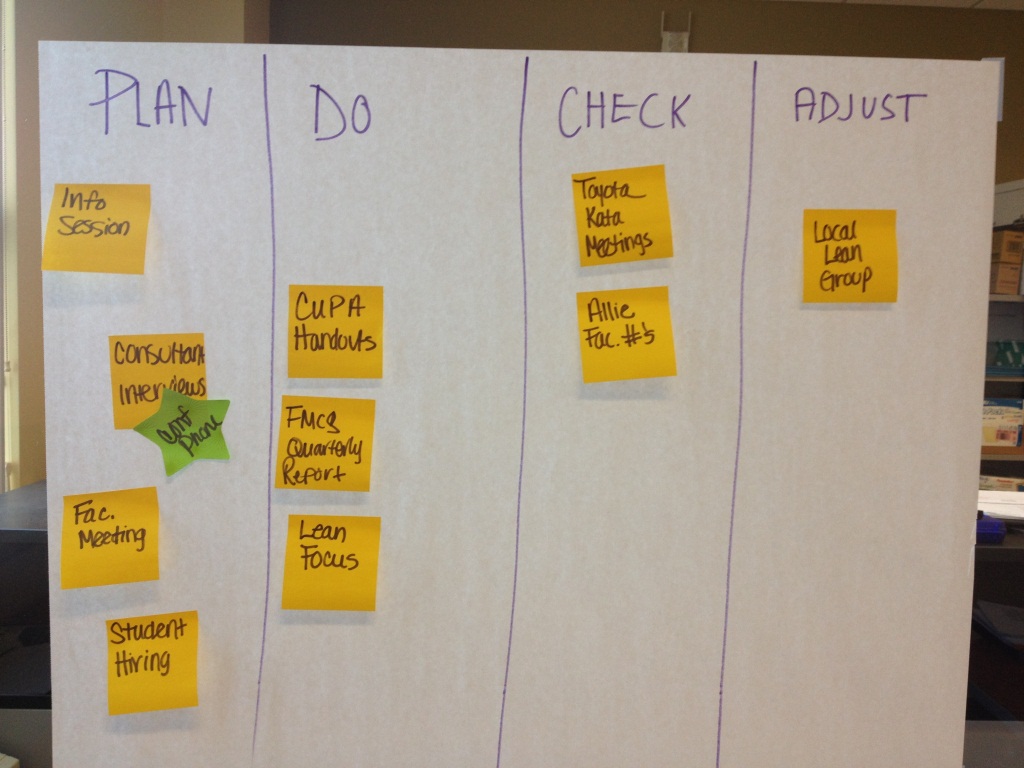 PLAN
DO
CHECK
ADJUST
Info
Session
Consultant
Interviews
Conf
Phone
Fac.
Meeting
Student
Hiring
CUPA
Handouts
FMcg
Quarterly
Report
Lean
Focus
Toyota
Kata
Meetings
Allie
Fac. #5
Local
Lean
Group